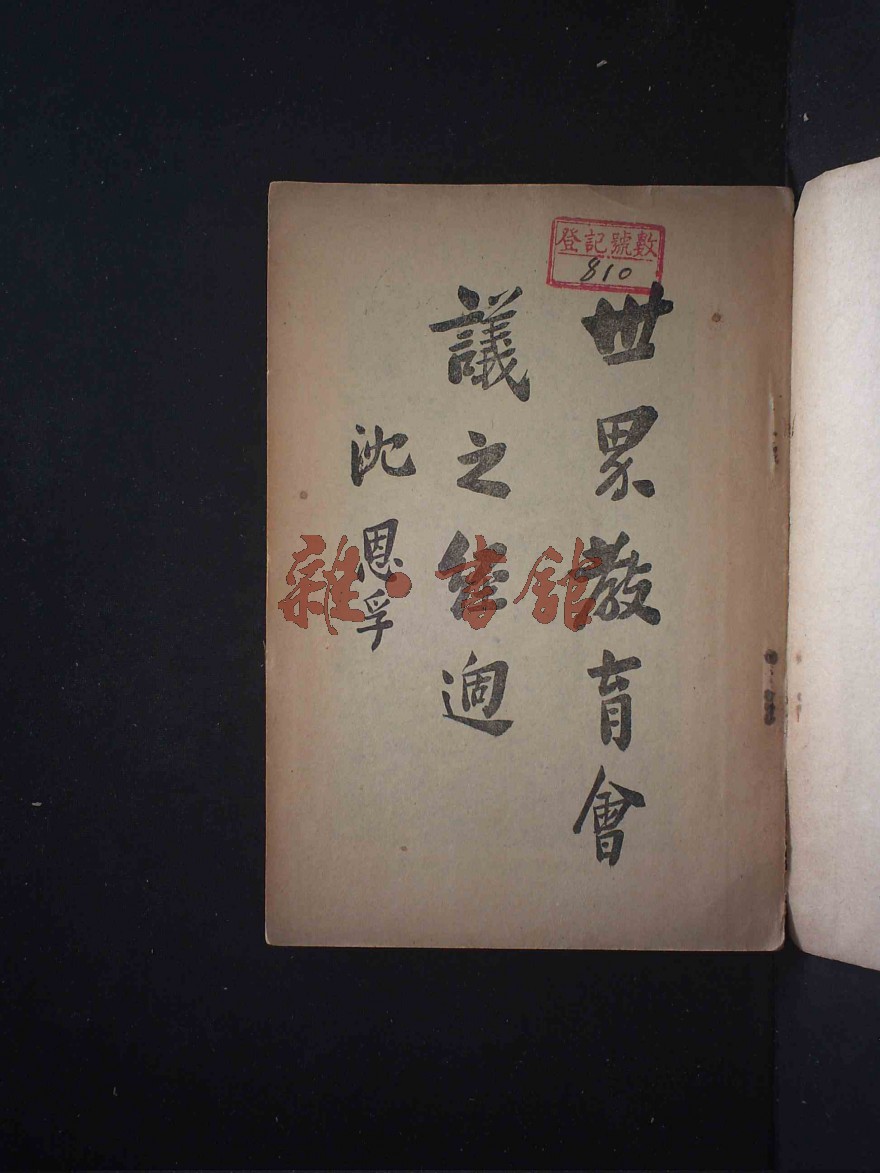 登記號數
810
世界教育會
議之經過
沈恩孚
雜·書館